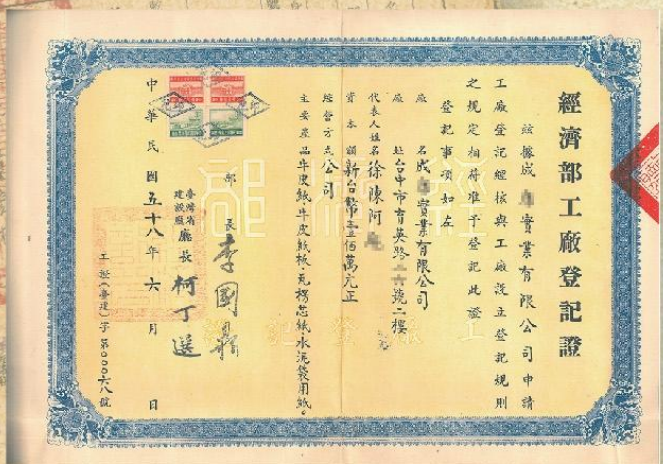 經濟部工廠登記證
茲據成 實業有限公司申請
工廠登記經核與工廠設立登記規則
之規定相符准予登記此證
登記事項如左
廠 名 成 實業有限公司
廠 址 台中市育英路 號二樓
代表人姓名 徐陳阿
資本額 新台幣 佰萬元正
經營方式 公司
主要產品 牛皮紙牛皮紙板、瓦楞芯紙水泥袋用紙。
部長 李國鼎
臺灣省建設廳 廳長 柯丁選
中華民國五十八年六月 日
工證(臺建)字第000六八號